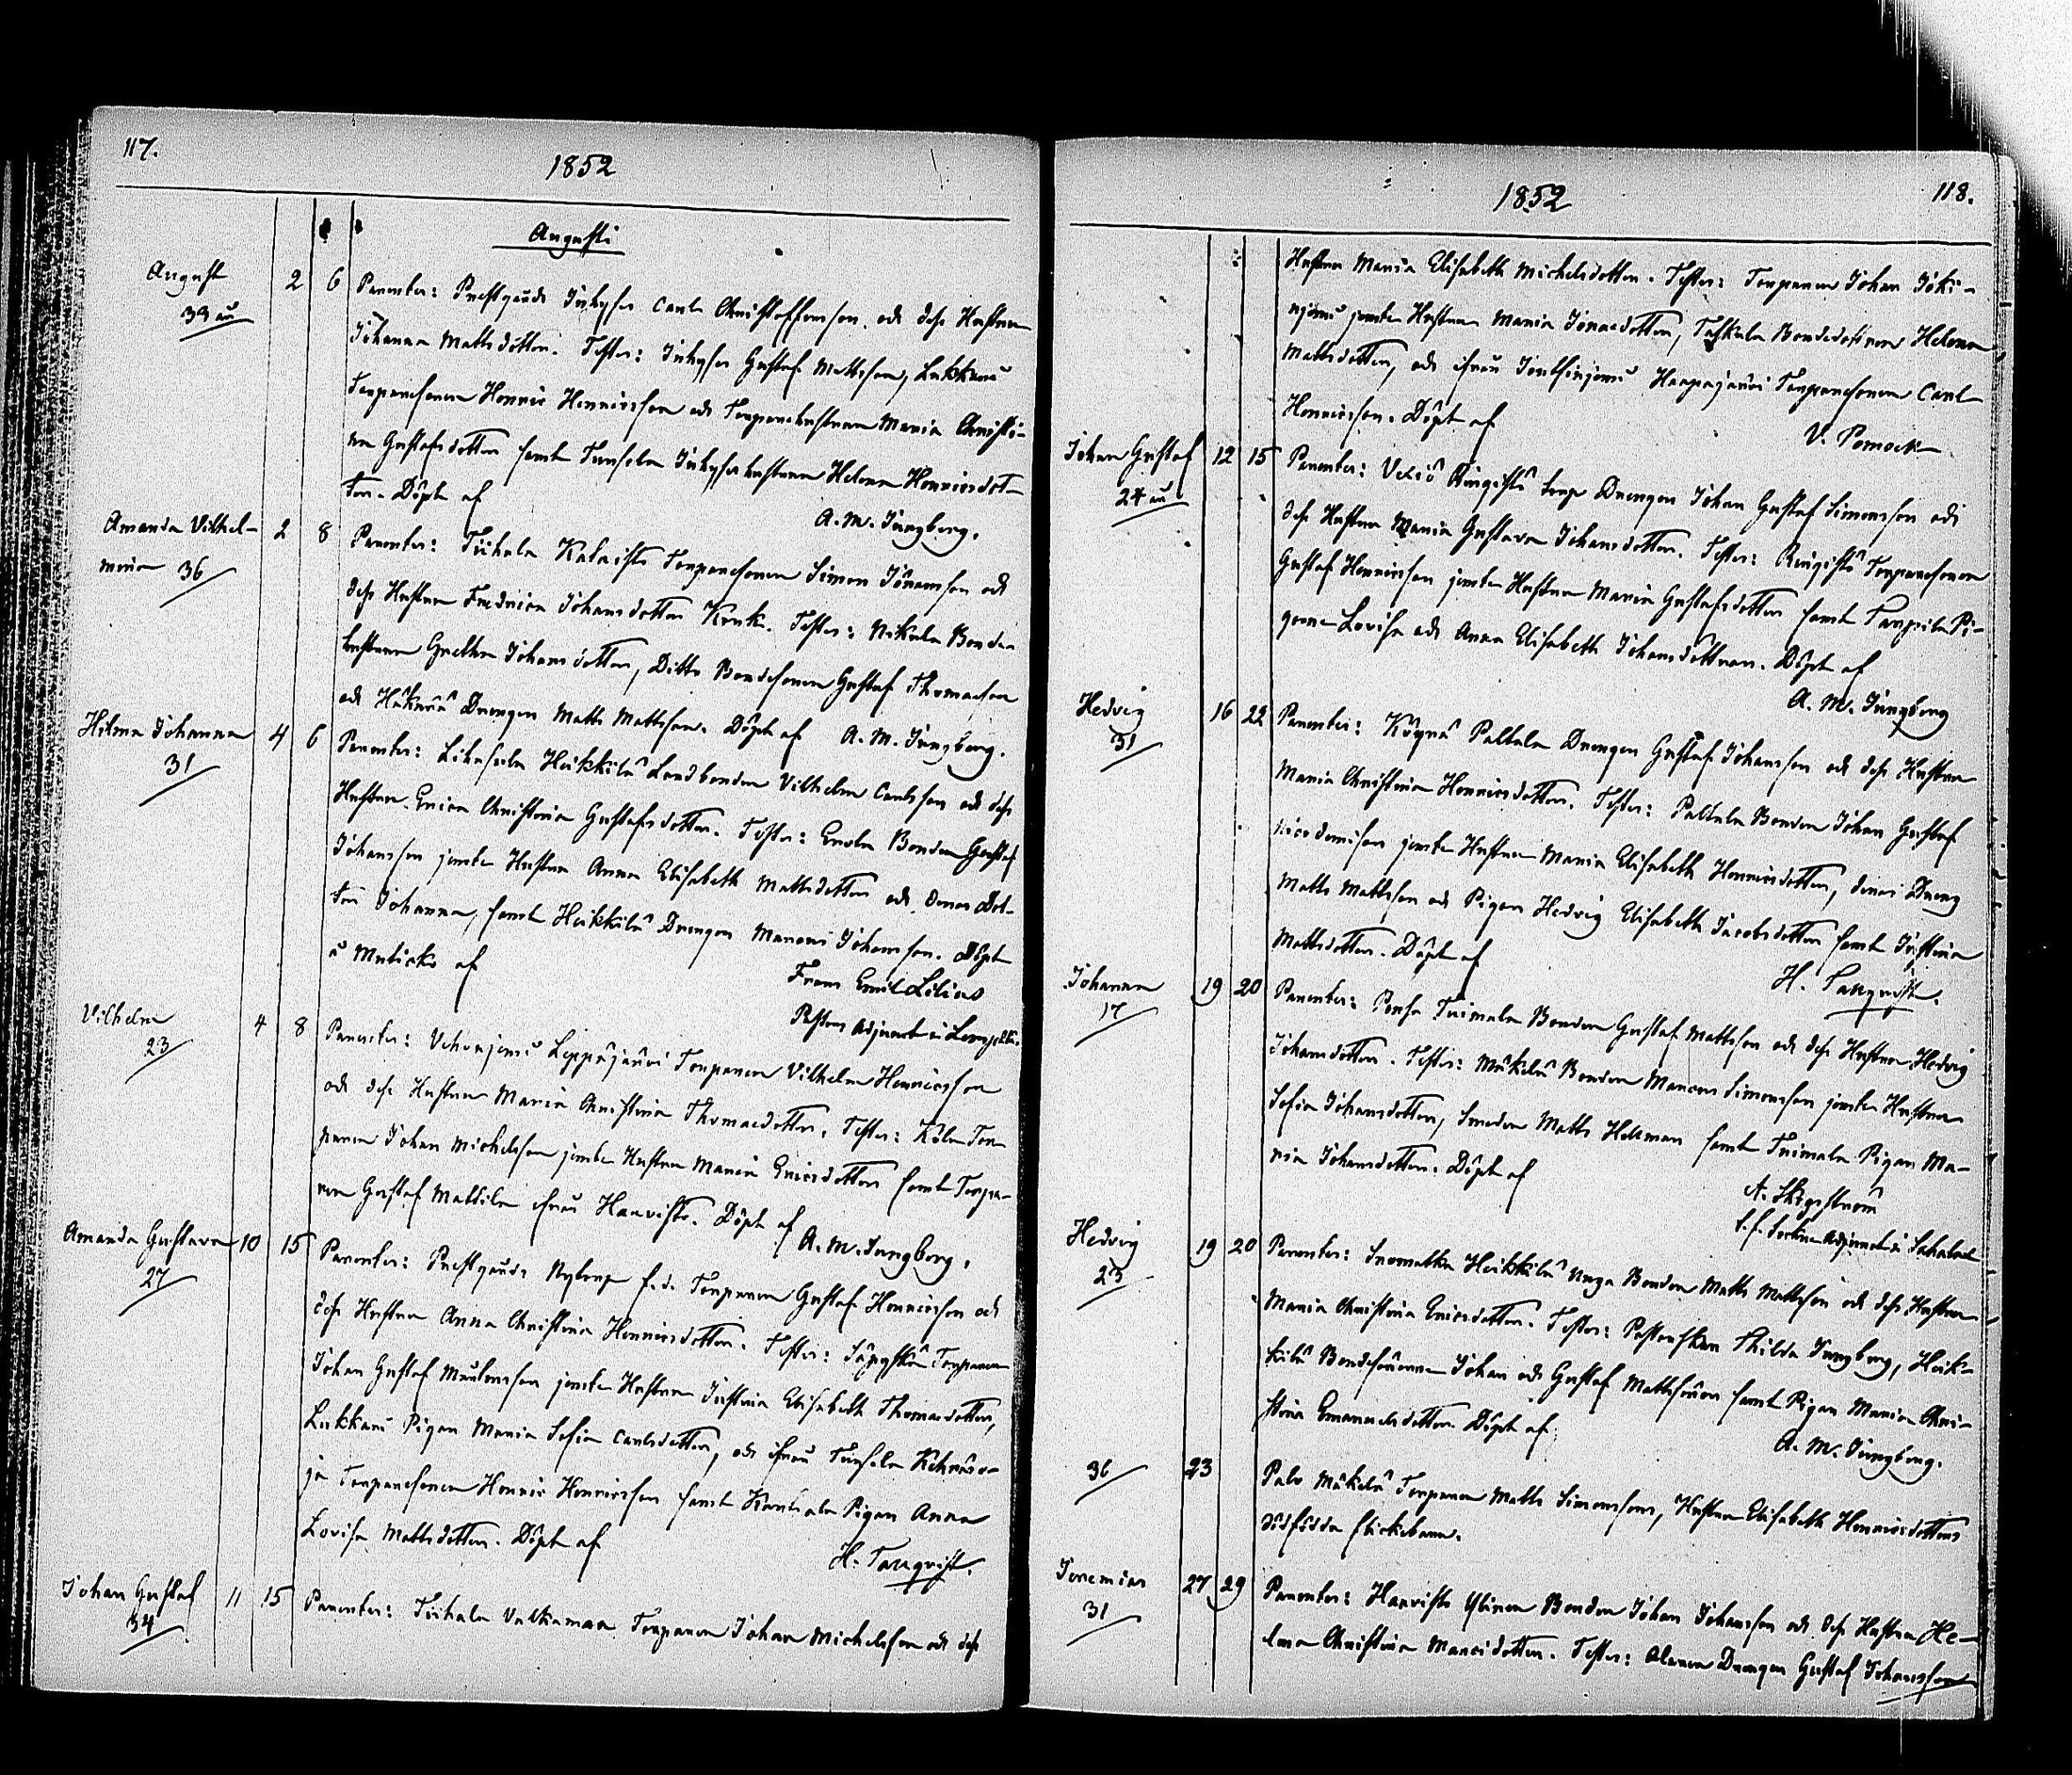 117.
1852
Augusti
August 2 6 Parenter: Prestgårds Inhyses Carl Christoffersson och dess Hustru
33 år
Johanna Mattsdotter. Testes: Inhyses Gustaf Mattsson, Lukkari
Torparesonen Henric Henricsson och Torparehustrun Maria Christi-
na Gustafsdotter samt Inhyseshustrun Helena Henricsdot-
ter. Döpt af
A. M. Ljungberg.
Amanda Vilhel- 2 8 Parenter: Torparesonen Simon och
mina 36
dess Hustru Fredrica Johansdotter Krook. Testes: Nikula Bonde-
hustrun Gretha Johansdotter, Ditto Bondesonen Gustaf Thomasson
och Drengen Matts Mattsson. Döpt af A. M. Ljungberg.
Hilma Johanna 4 6 Parenter: Heikkilä Landbonden Vilhelm Carlsson och dess
31
Hustru Erica Christina Gustafsdotter. Testes: Bonden Gustaf
Johansson jemte Hustru Anna Elisabeth Mattsdotter och deras Dot-
ter Johanna, samt Heikkilä Drengen Johansson. Döpt
af
Frans Emil Lilius
Pastors Adjunct i
Vilhelm 4 8 Parenter: Leppäjärvi Torparen Vilhelm Henricsson
23
och dess Hustru Maria Christina Thomasdotter. Testes: Tor-
paren Johan Michelsson jemte Hustru Maria Ericsdotter samt Torpa-
ren Gustaf Mattila ifrån Haavisto. Döpt af
A. M. Ljungberg.
Amanda Gustava 10 15 Parenter: Prestgårds Nytorp f.d. Torparen Gustaf Henricsson och
27
dess Hustru Anna Christina Henricsdotter. Testes: Torparen
Johan Gustaf jemte Hustru Justina Elisabeth Thomasdotter,
Lukkari Pigan Maria Sofia Carlsdotter, och ifrån
Torparesonen Henric Henricsson samt Pigan Anna
Lovisa Mattsdotter. Döpt af
H. Tanqvist.
Johan Gustaf 11 15 Parenter: Valkamaa Torparen Johan Michelsson och dess
34
1852
118.
Hustru Maria Elisabeth Michelsdotter. Testes: Torparen Johan Joki-
jemte Hustru Maria Jonasdotter, Bondedottren Helena
Mattsdotter, och ifrån Haapajärvi Torparesonen Carl
Henricsson. Döpt af
Johan Gustaf 12 15 Parenter: Drengen Johan Gustaf Simonsson och
24 år
dess Hustru Maria Gustava Johansdotter. Testes: Torparesonen
Gustaf Henricsson jemte Hustru Maria Gustafsdotter samt Pi-
gorne Lovisa och Anna Elisabeth Johansdöttrar. Döpt af
A. M. Ljungberg
Hedvig 16 22 Parenter: Paltala Drengen Gustaf Johansson och dess Hustru
31
Maria Christina Henricsdotter. Testes: Paltala Bonden Johan Gustaf
Nicodemisson jemte Hustru Maria Elisabeth Henricsdotter, deras Dreng
Matts Mattsson och Pigan Hedvig Elisabeth Jacobsdotter samt Justina
Mattsdotter. Döpt af
H. Tanqvist.
Johanna 19 20 Parenter: Tuimala Bonden Gustaf Mattsson och dess Hustru Hedvig
17
Johansdotter. Testes: Mäkelä Bonden Simonsson jemte Hustru
Sofia Johansdotter, Smeden Matts Hellman samt Tuimala Pigan Ma-
ria Johansdotter. Döpt af
Hedvig 19 20 Parenter: Heikkilä Unga Bonden Matts Mattsson och dess Hustru
23
Maria Christina Ericsdotter. Testes: Pastorskan Hilda Ljungberg, Heik-
kilä Bondesönerne Johan och Gustaf Mattssöner samt Pigan Maria Chri-
stina Emanuelsdotter. Döpt af
A. M. Ljungberg.
36 23 Palo Mäkelä Torparen Matts Simonssons, Hustru Elisabeth Henricsdotters
dödfödda flickebarn.
Jeremias 27 29 Parenter: Haavisto Bonden Johan Johansson och dess Hustru He-
31
lena Christina Marcsdotter. Testes: Drengen Gustaf Johansson